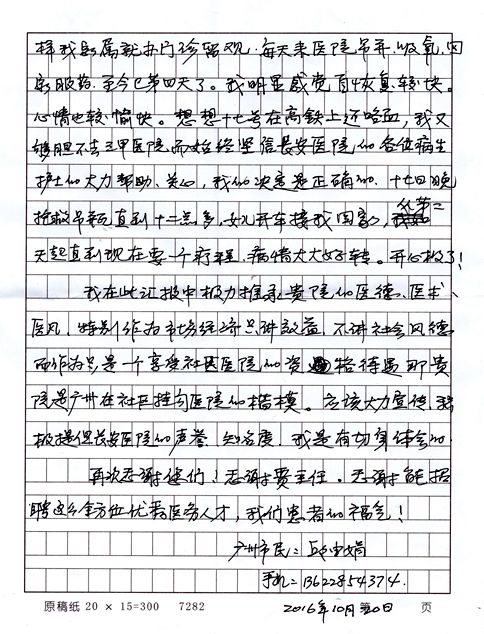 样我就属就办门诊留观。每天来医院吊针、吸氧、回
家服药、至今已第四天了。我明显感觉自恢复较快。
心情也较愉快。想想十七号在高铁上还咯血,我又
够胆不去三甲医院而始终坚信长安医院的各位病生
护士的大力帮助、关心,我的决定是正确的。十七日晚
抢救吊瓶直到十二点多,女儿开车接我回家,从第二
天起直到现在要一个疗程。病情大大好转。开心极了!
我在此汇报中极力推荐贵院的医德、医术、
医风,特别作为市场经济只讲效益,不讲社会风德
而作为只是一个享受社区医院的资格待遇那贵
院是广州在社区挂勾医院的楷模。应该大力宣传,积
极提倡长安医院的声誉、知名度,我是有切身体会的。
再次感谢您们!感谢贾主任。感谢能招
聘这么全方位优秀医务人才,我们患者的福气!
广州市民:
手机:13622854374.
2016年10月20日
原稿纸 20 × 15=300 7282 页